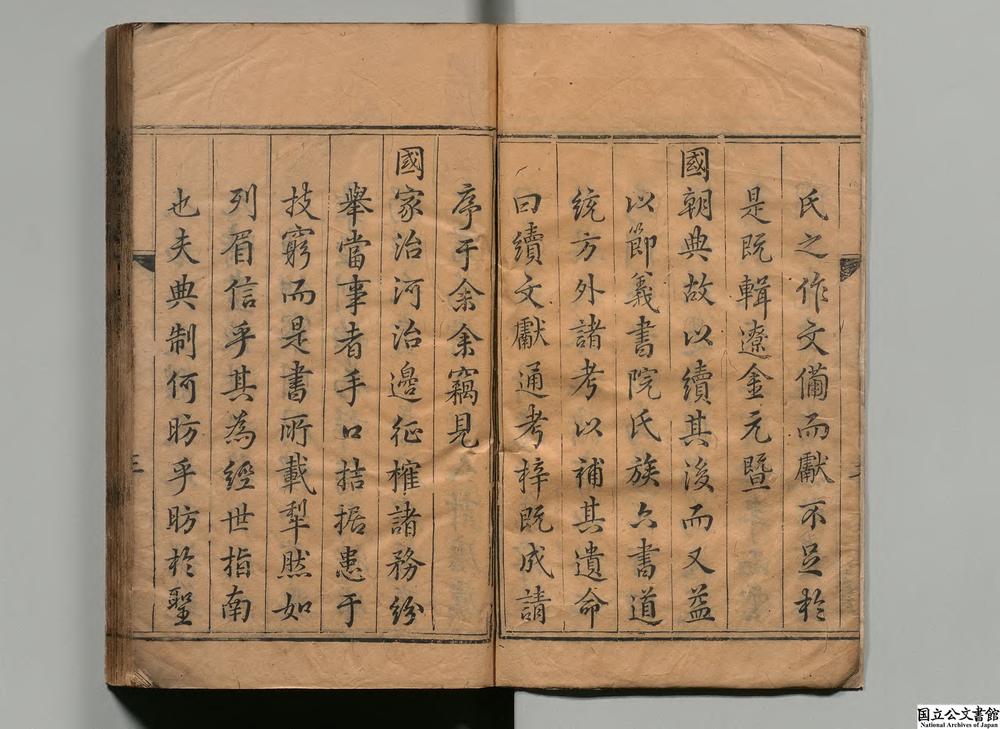 氏之作文備而獻不足於
是既輯遼金元暨
國朝典故以續其後而又益
以節義書院氏族六書道
統方外諸考以補其遺命
曰續文獻通考梓既成請
序于余余竊見
國家治河治邊征榷諸務紛
舉當事者手口拮据患于
技窮而是書所載犁然如
列眉信乎其為經世指南
也夫典制何昉乎昉於聖
三
国立公文書館
National Archives of Japan